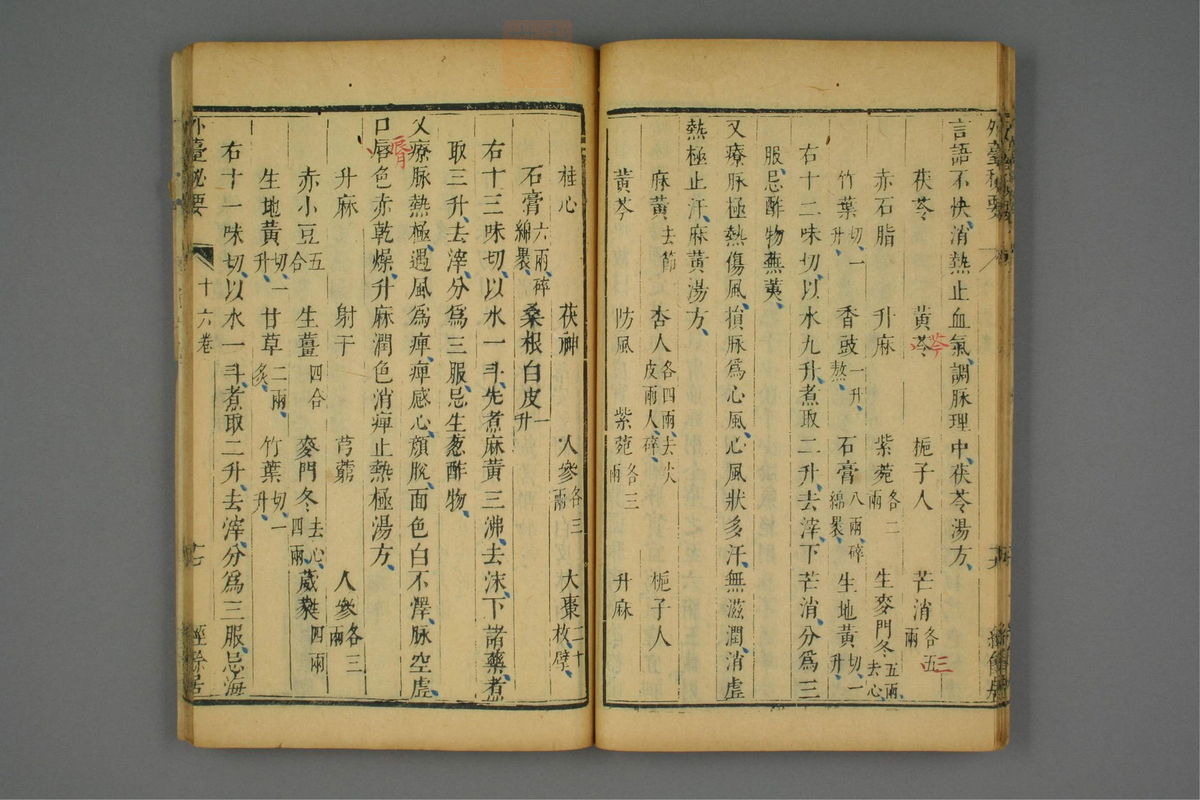 言語不快消熱止血氣調脉理中茯苓湯方
茯苓 黃苓 梔子人 芒消各五兩
芩
三
赤石脂 升麻 紫菀各二兩 生麥門冬五兩去心
竹葉切一升 香豉一升熬 石膏八兩碎綿裹 生地黃切一升
右十二味切以水九升煮取二升去滓下芒消分爲三
服忌酢物蕪荑
又療脉極熱傷風損脉爲心風心風狀多汗無滋潤消虛
熱極止汗麻黃湯方
麻黃去節 杏人各四兩去尖皮兩人碎 梔子人
黃芩 防風 紫菀各三兩 升麻
桂心 茯神 人參各三兩 大棗二十枚擘
石膏六兩碎綿裹 桑根白皮一升
右十三味切以水一斗先煮麻黃三沸去沫下諸藥煮
取三升去滓分爲三服忌生葱酢物
又療脉熱極遇風爲痺痺感心顔脫面色白不澤脉空虛
口唇色赤乾燥升麻潤色消痺止熱極湯方
升麻 射干 芎藭 人參各三兩
赤小豆五合 生薑四合 麥門冬去心四兩 葳蕤四兩
生地黃切一升 甘草二兩炙 竹葉切一升
右十一味切以水一斗煮取二升去滓分爲三服忌海
外臺秘要 十六卷 十七 經餘居